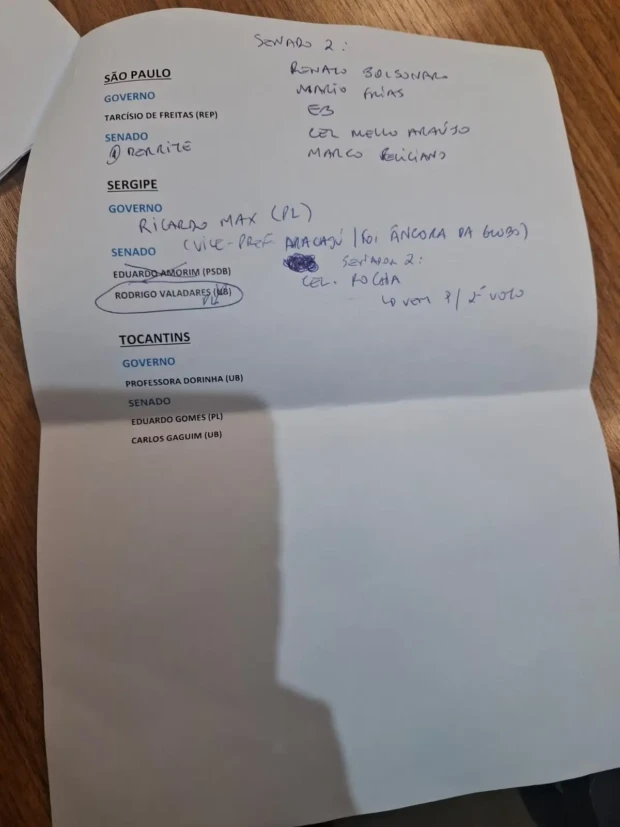 SENADO 2:
SÃO PAULO
RENATO BOLSONARO
GOVERNO
MARIO FRIAS
TARCÍSIO DE FREITAS (REP)
EB
SENADO
CEL MELLO ARAÚJO
① DERRITE
MARCO FELICIANO
SERGIPE
GOVERNO
RICARDO MAX (PL)
(VICE-PREF. ARACAJÚ / FOI ÂNCORA DA GLOBO)
SENADO
EDUARDO AMORIM (PSDB)
SENADOR 2:
CEL. ROCHA
RODRIGO VALADARES (UB)
PL
LO VEM P/ 2º VOTO
TOCANTINS
GOVERNO
PROFESSORA DORINHA (UB)
SENADO
EDUARDO GOMES (PL)
CARLOS GAGUIM (UB)